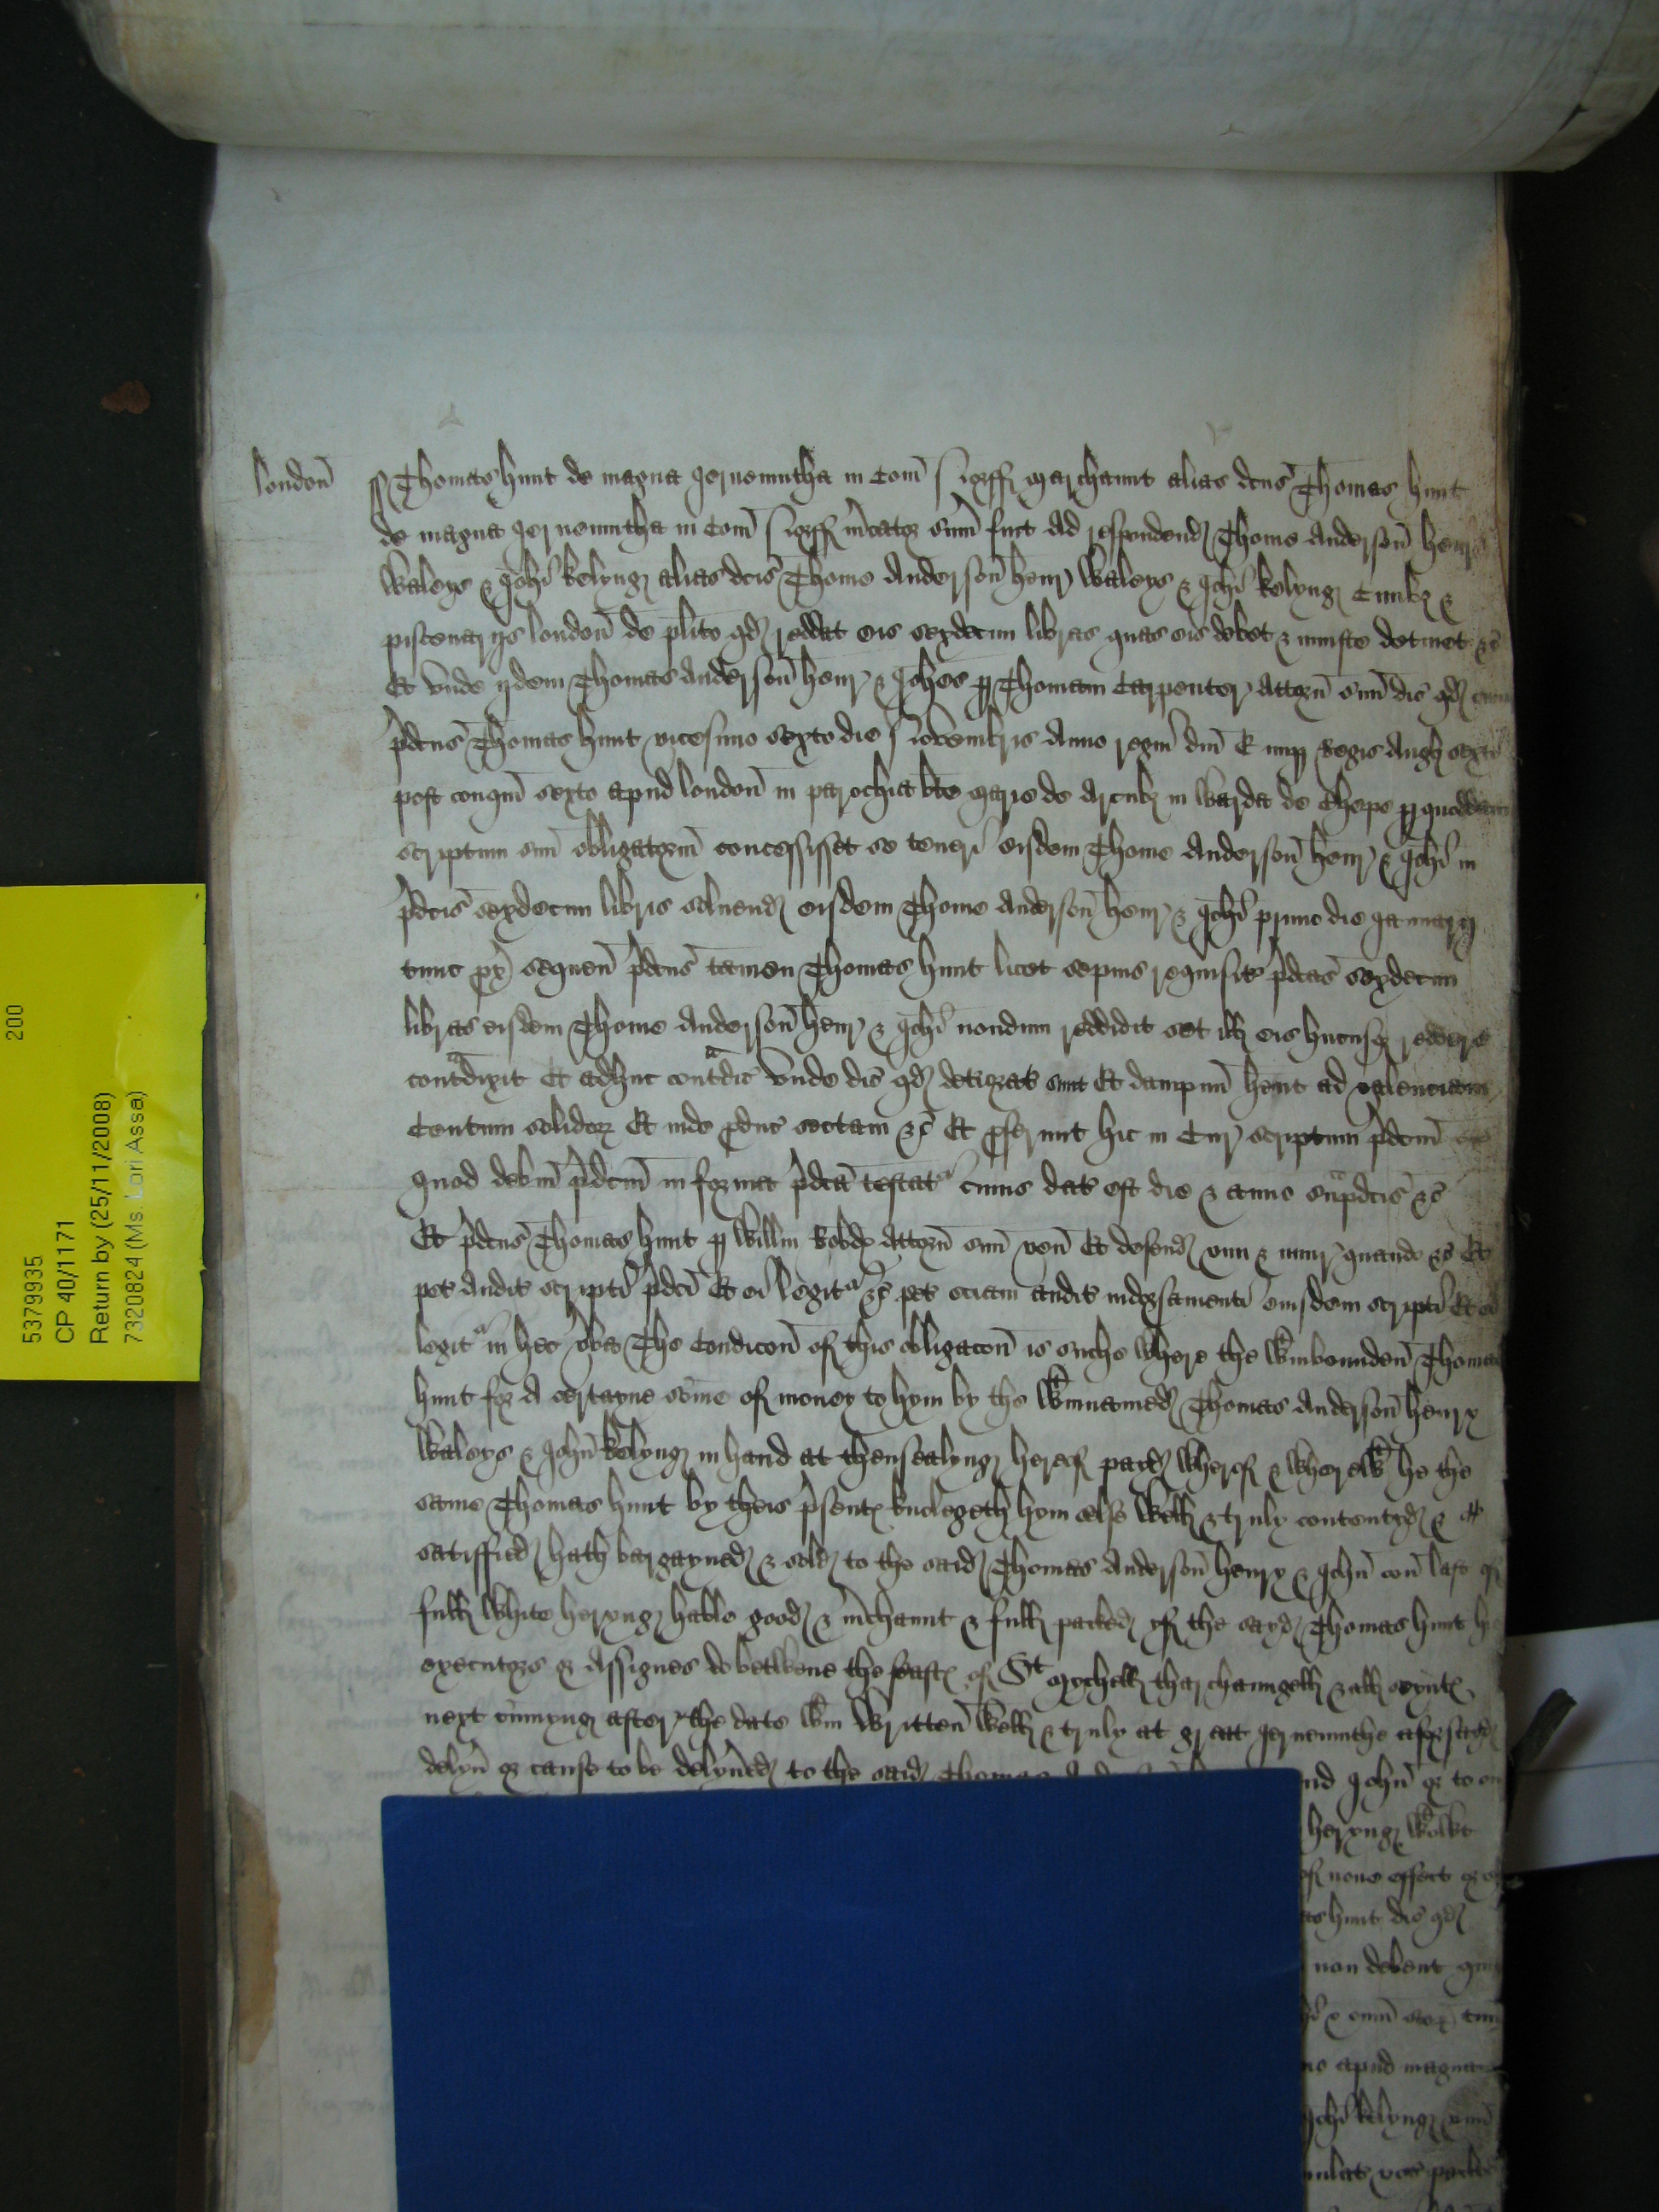 5379935 200
CP 40/1171
Return by (25/11/2008)
7320824 (Ms. Lori Assa)
london̄ Thomas Hunt de magna Jernemutha in Com̄ Norff marchaunt alias dcūs Thomas Hunt
de magna Jernemutha in Com̄ Norff m̄cator sum̄ fuit ad respondend Thome Anderson̄ Henr
Waleys & Joh̄i Kelyng alias dcīs Thome Anderson̄ Henr Waleys & Joh̄i Kelyng Civibȝ &
piscenarijs london̄ de pl̄ito qd reddat eis sexdecim libras quas eis debet & iniuste detinet &c̄
Et vnde ijdem Thomas Anderson̄ Henr & Joh̄es p Thomam Carpenter attorn̄ suū dic̄ qd
p̄dcūs Thomas Hunt vicesimo sexto die Novembris Anno regni dn̄i E nup Regis Angl sexti
post conqm̄ sexto apud london̄ in parochia bt̄e Marie de Arcubȝ in Warda de Chepe p quoddam
scriptum suū obligatoriū concessisset se teneri eisdem Thome Anderson̄ Henr & Joh̄i in
p̄dcīs sexdecim libris soluend eisdem Thome Anderson̄ Henr & Joh̄i primo die Januarij
tunc px̄ sequen̄ p̄dcūs tamen Thomas Hunt licet sepius requisit p̄dcās sexdecim
libras eisdem Thome Anderson̄ Henr & Joh̄i nondum reddidit set ill eis hucusqȝ reddere
contᵃdixit Et adhuc contᵃdic̄ vnde dic̄ qd deteriorat sunt Et dampnū hent ad valenciam
Centum solidorȝ Et inde pduc̄ sectam &c̄ Et pferunt hic in Cur scriptum p̄dcm̄
quod debm̄ p̄dcm̄ in forma p̄dcā testatʳ cuius dat est die & anno sup̄dcīs &c̄
Et p̄dcūs Thomas Hunt p Willm attorn̄ suū ven̄ Et defend vim & iniur quando &c̄ Et
pet audit scripti p̄dcī Et ei legitʳ &c̄ pet eciam audit indorsamenti eiusdem scripti Et ei
legitʳ in hec v̄ba The Condicōn of this obligacōn is suche where the wᵗinbounden̄ Thomas
Hunt for A certayne som̄e of money to hym by the wᵗinnamed Thomas Anderson̄ Henry
Waleys & John̄ Kelyng in hand at thensealyng hereof payed wherof & wherewᵗ he the
same Thomas Hunt by theis p̄sentȝ knolegeth hym selfe well & truly contentyd &
satisffied hath bargayned & sold to the said Thomas Anderson̄ Henry & John̄ last of
full white heryng hable good & m̄chaunt & full packed yf the sayd Thomas Hunt
executors or Assignes do betwene the feastȝ of Sᵗ Mychell tharchaungell & all seyntȝ
next cūmyng after the date wᵗin written̄ well & truly at great Jernemuthe aforsayd
delyv̄ or cause to be delyv̄ed to the said Thomas nd John̄ or to
heryng
of none effect or
as Hunt dic̄ qd
non debent
apud magna
Joh̄i Kelyng